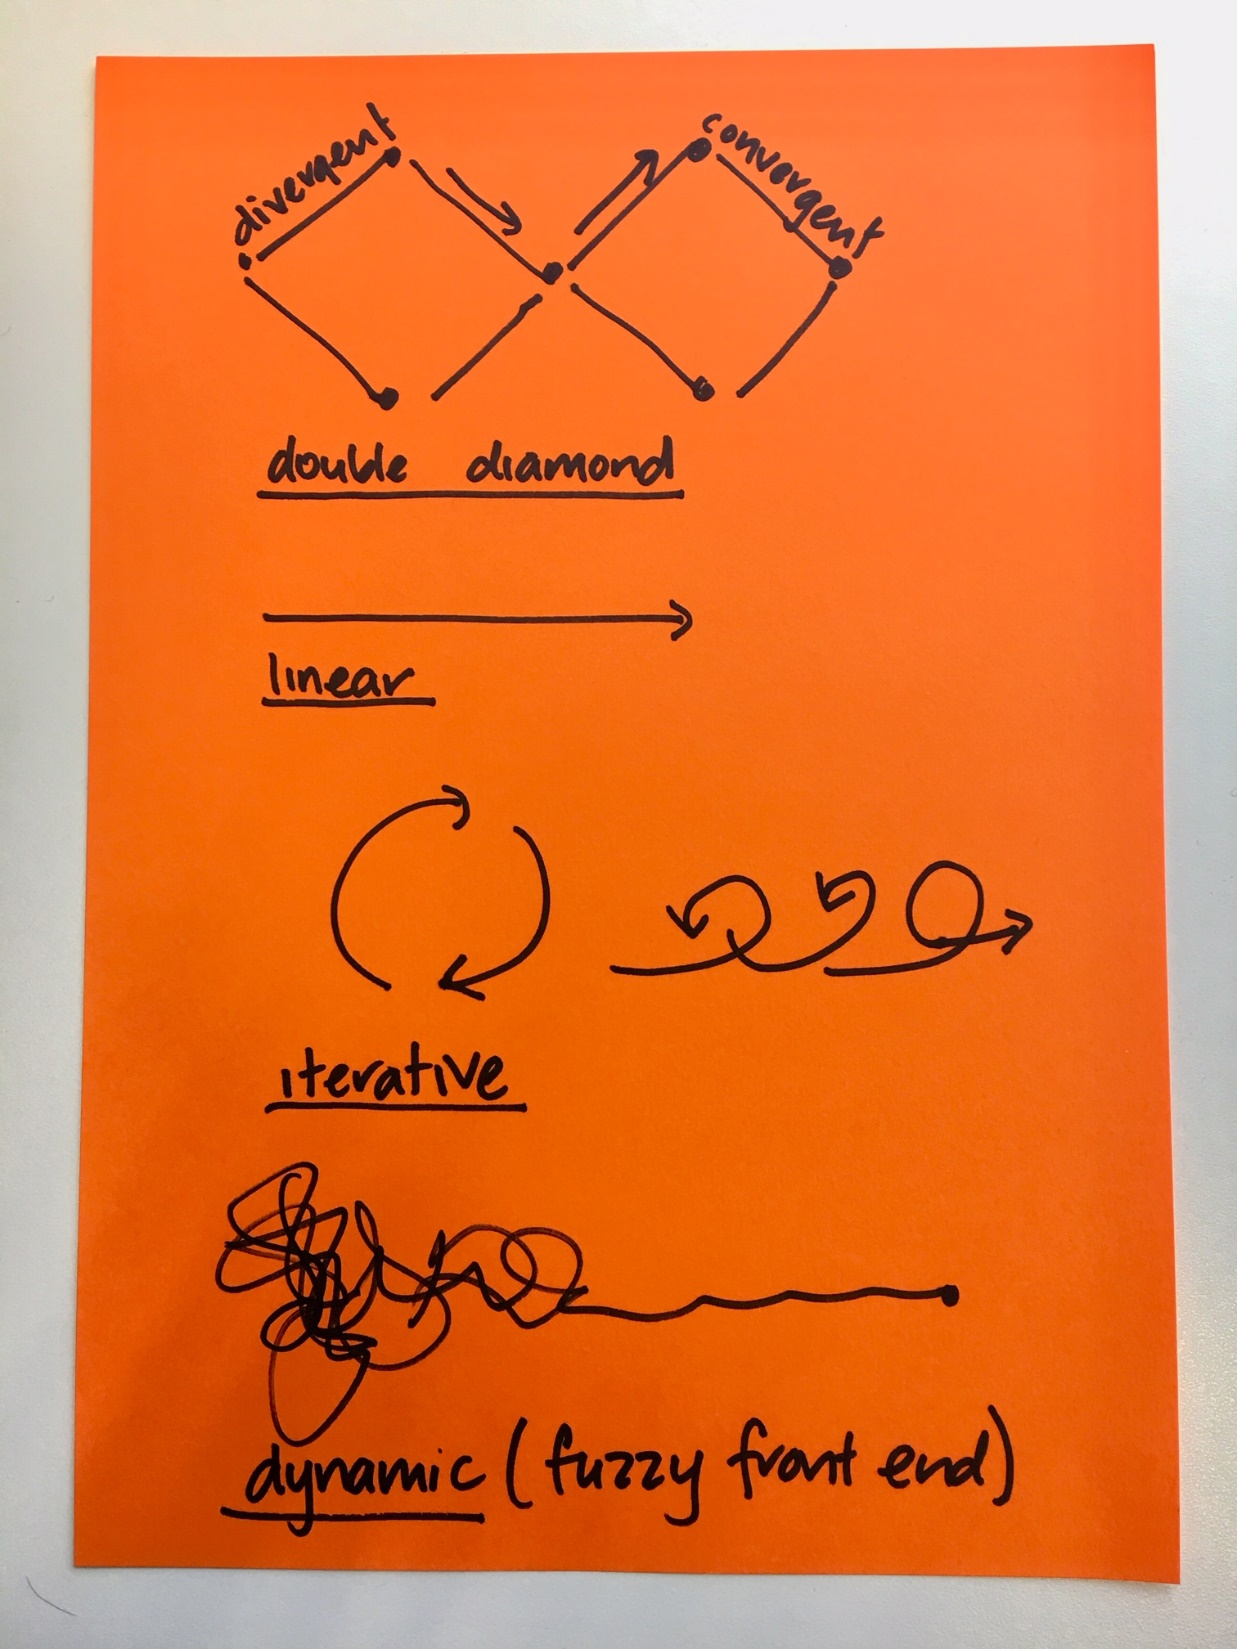 divergent
convergent
double diamond
linear
iterative
dynamic (fuzzy front end)